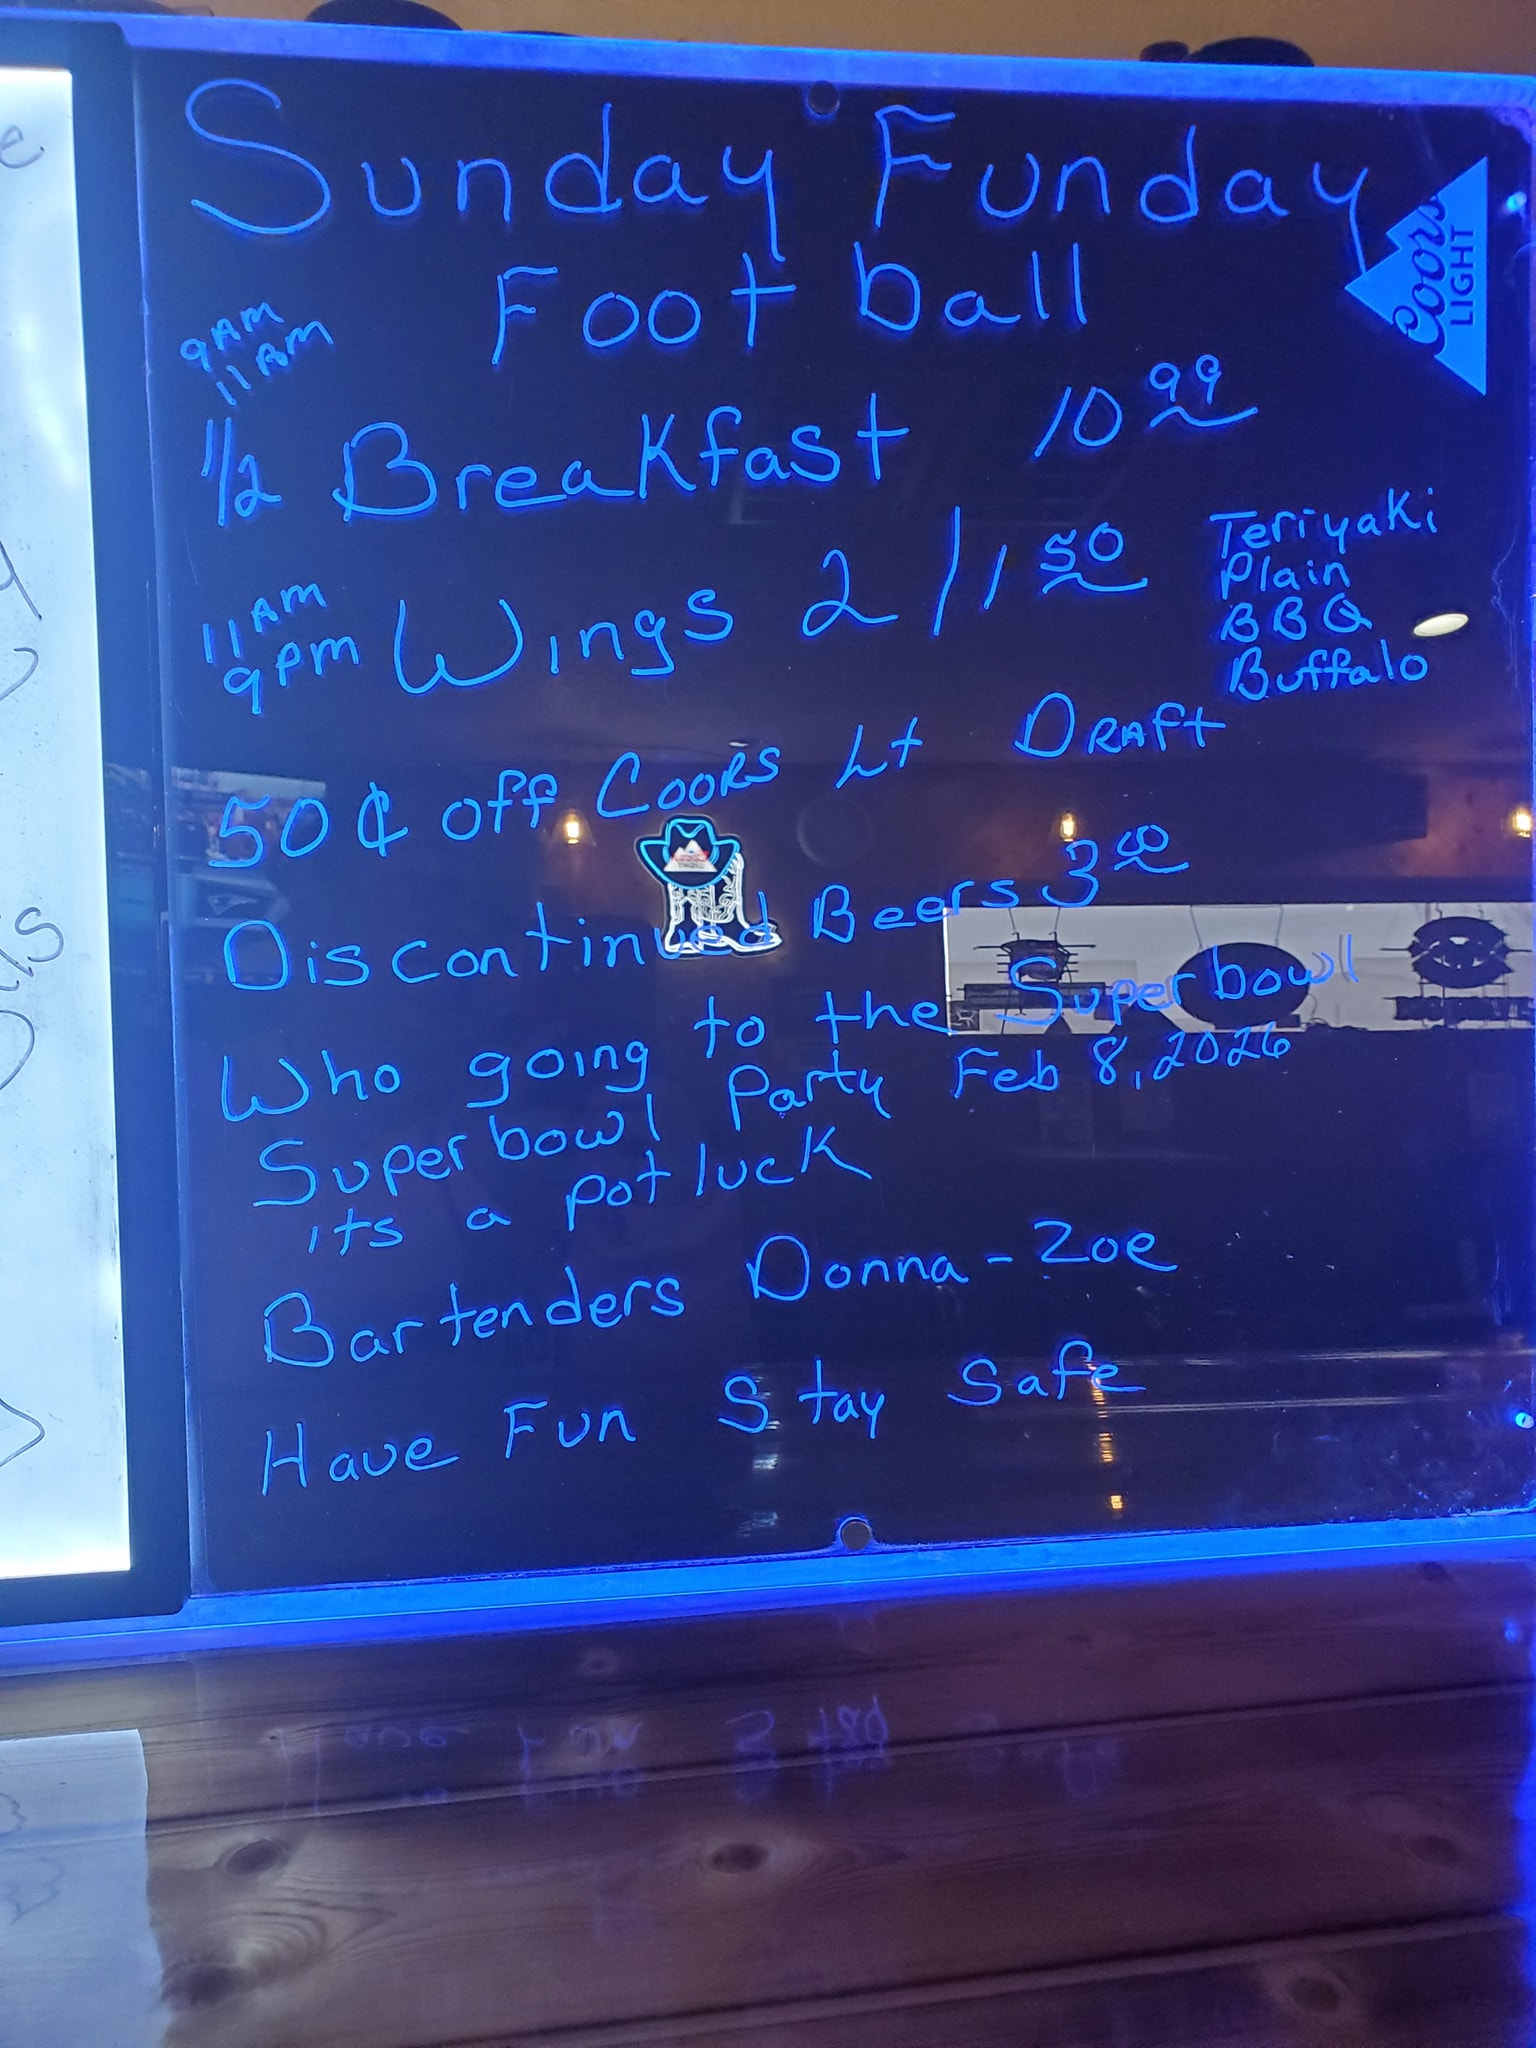 Sunday Funday
Football
Coors
LIGHT
9AM
11AM
1/2 Breakfast 10 99
11AM
9PM
Wings 2/1 50
Teriyaki
Plain
BBQ
Buffalo
50¢ off COORS Lt DRAft
Discontinued Beers 3 00
Who going to the Superbowl
Superbowl Party Feb 8, 2026
its a potluck
Bartenders Donna - Zoe
Have Fun Stay Safe